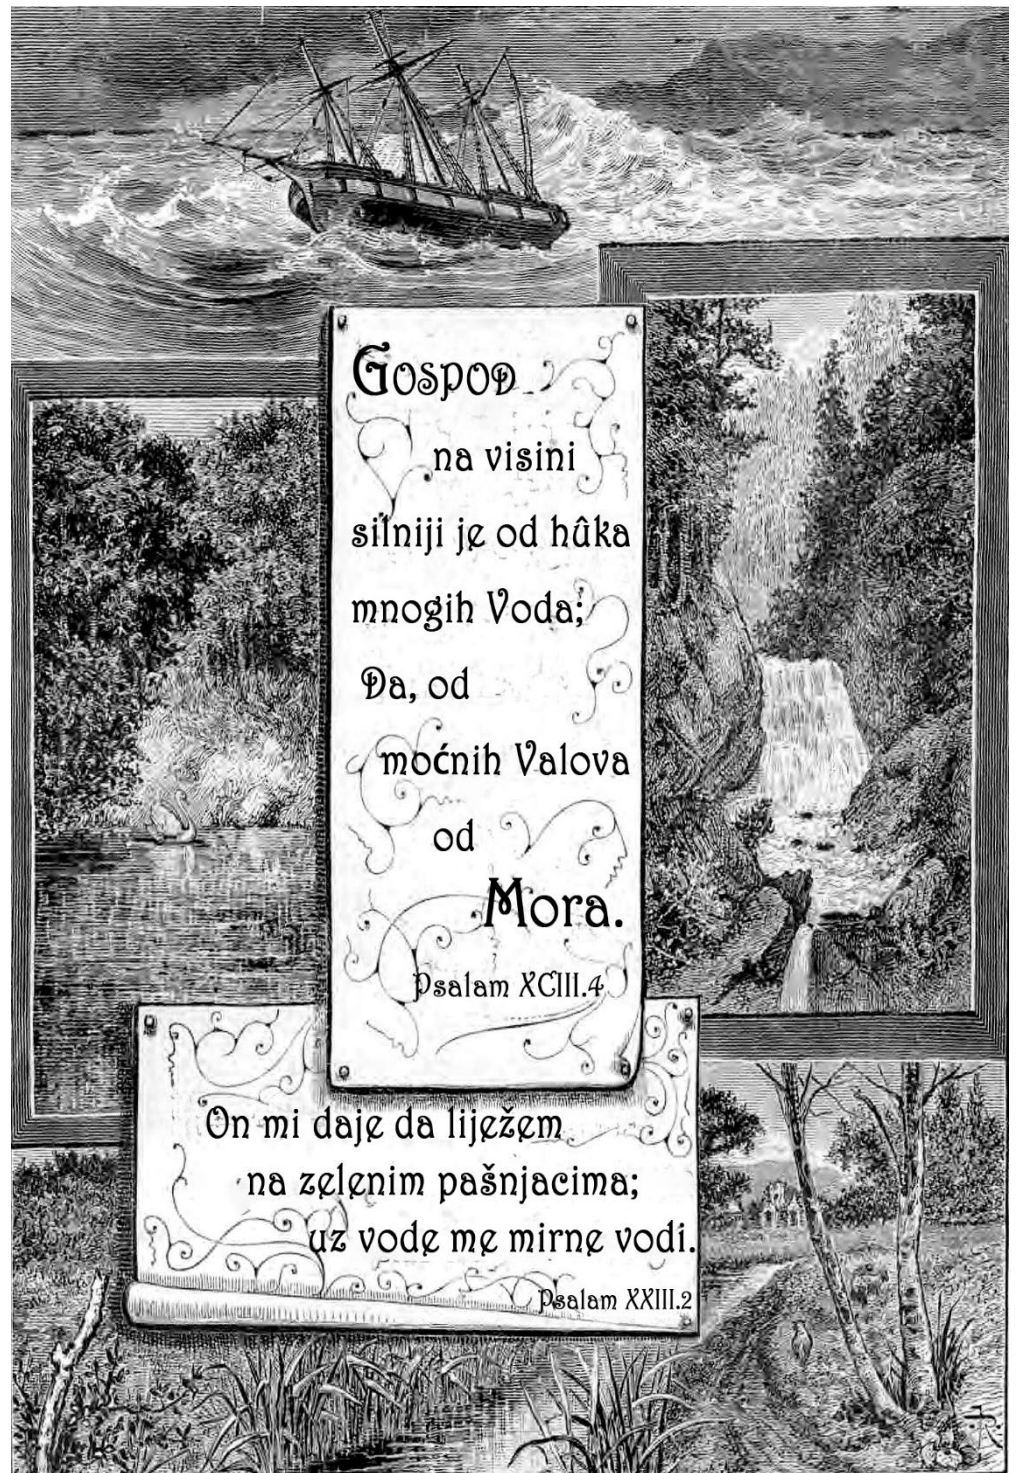 Gospod
na visini
silniji je od hûka
mnogih Voda;
Da, od
moćnih Valova
od
Mora.
Psalam XCIII.4
On mi daje da liježem
na zelenim pašnjacima;
uz vode me mirne vodi.
Psalam XXIII.2